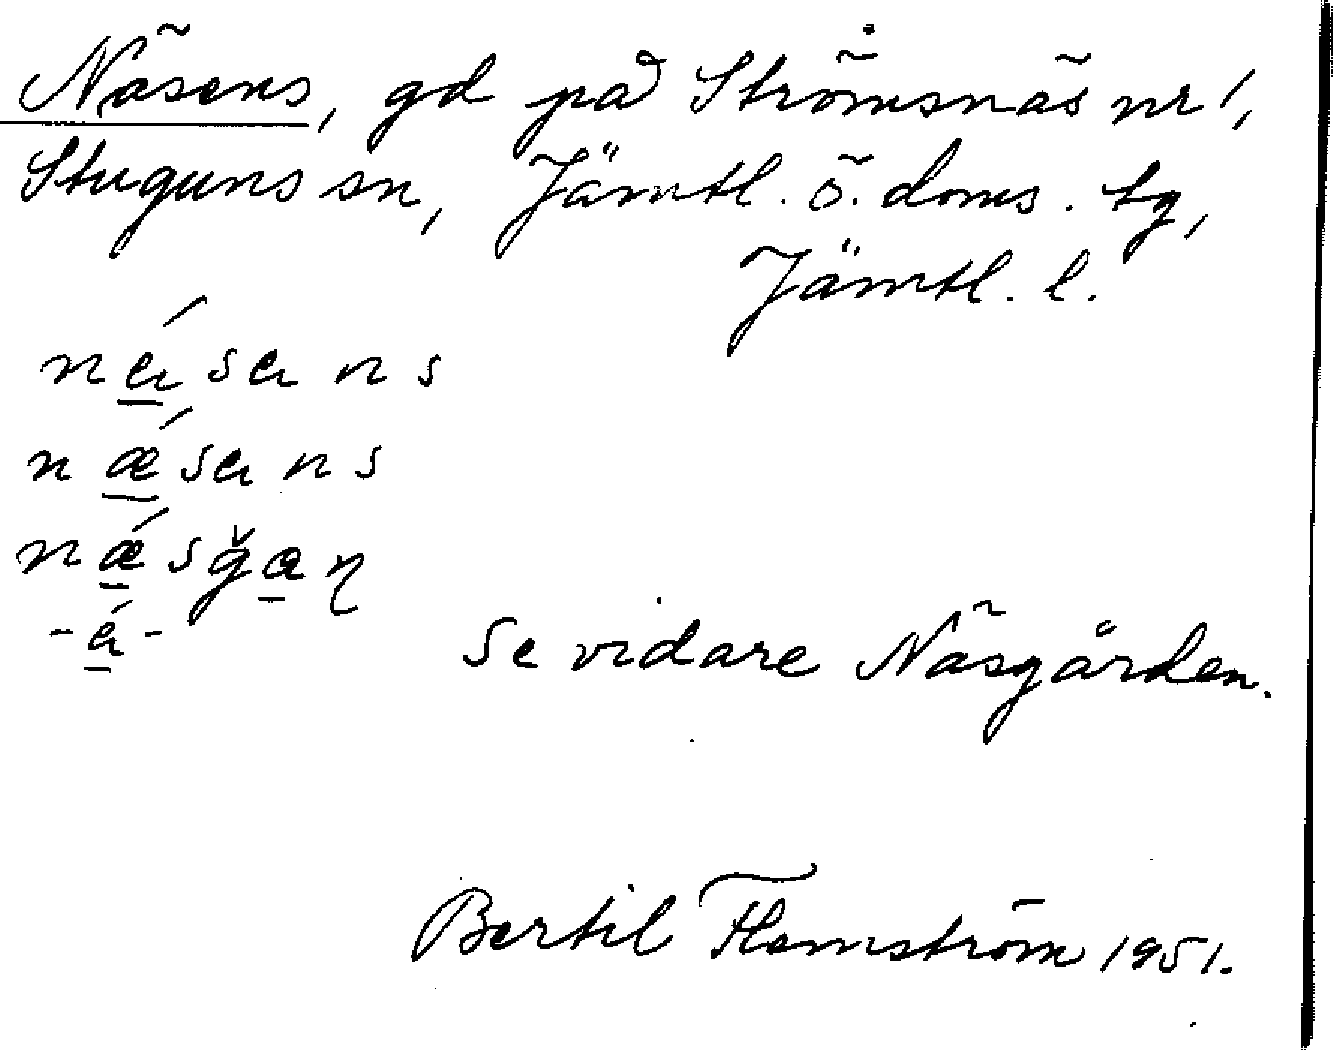 Näsens, gd på Strömsnäs nr 1,
Stuguns sn, Jämtl. ö. doms. tg,
Jämtl. l.
Se vidare Näsgården.
Bertil Flemström 1951.